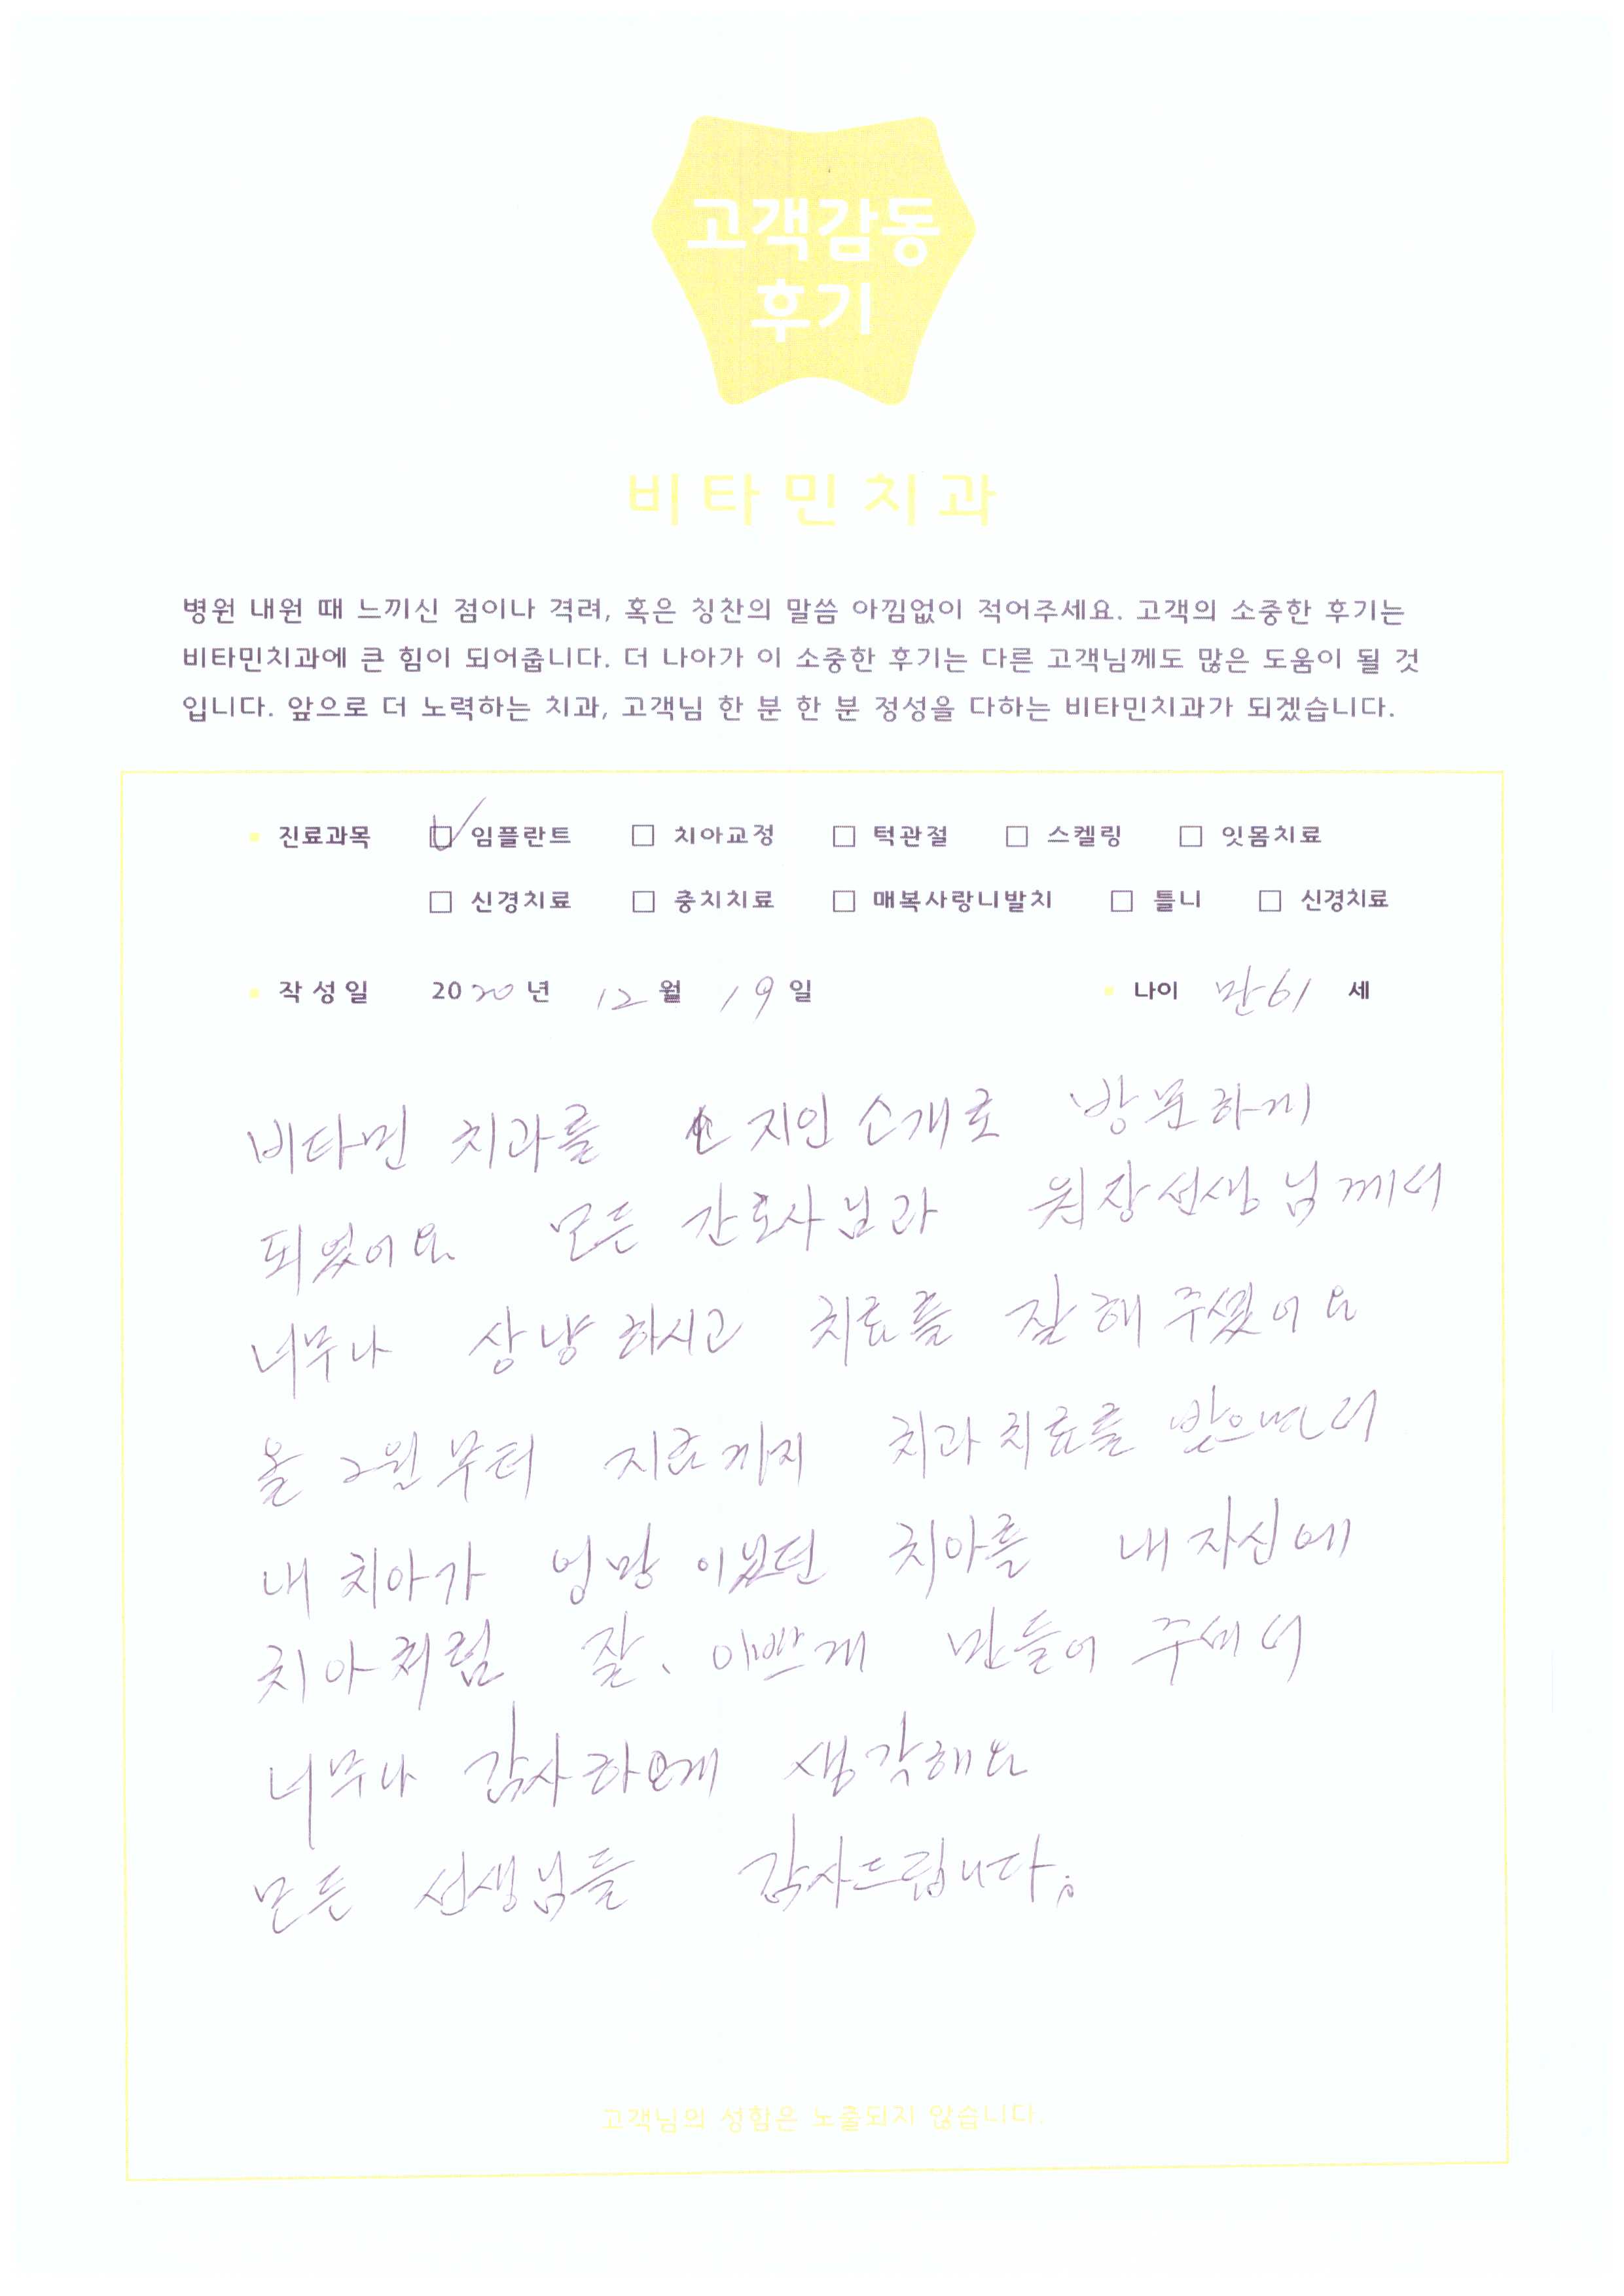 고객감동
후기
비타민치과
병원 내원 때 느끼신 점이나 격려, 혹은 칭찬의 말씀 아낌없이 적어주세요. 고객의 소중한 후기는
비타민치과에 큰 힘이 되어줍니다. 더 나아가 이 소중한 후기는 다른 고객님께도 많은 도움이 될 것
입니다. 앞으로 더 노력하는 치과, 고객님 한 분 한 분 정성을 다하는 비타민치과가 되겠습니다.
진료과목 임플란트 치아교정 턱관절 스켈링 잇몸치료
신경치료 충치치료 매복사랑니발치 틀니 신경치료
작성일 2020년 12월 19일 나이 만61 세
비타민 치과를 지인 소개로 방문하게
되었어요 모든 간호사님과 원장선생님께서
너무나 상냥하시고 치료를 잘해 주셨어요
올 2월부터 치과치료를 받으면서
내 치아가 엉망이었던 치아를 내 자신에
치아처럼 잘, 이쁘게 만들어 주셔서
너무나 감사하게 생각해요
모든 선생님들 감사드립니다.
고객님의 성함은 노출되지 않습니다.